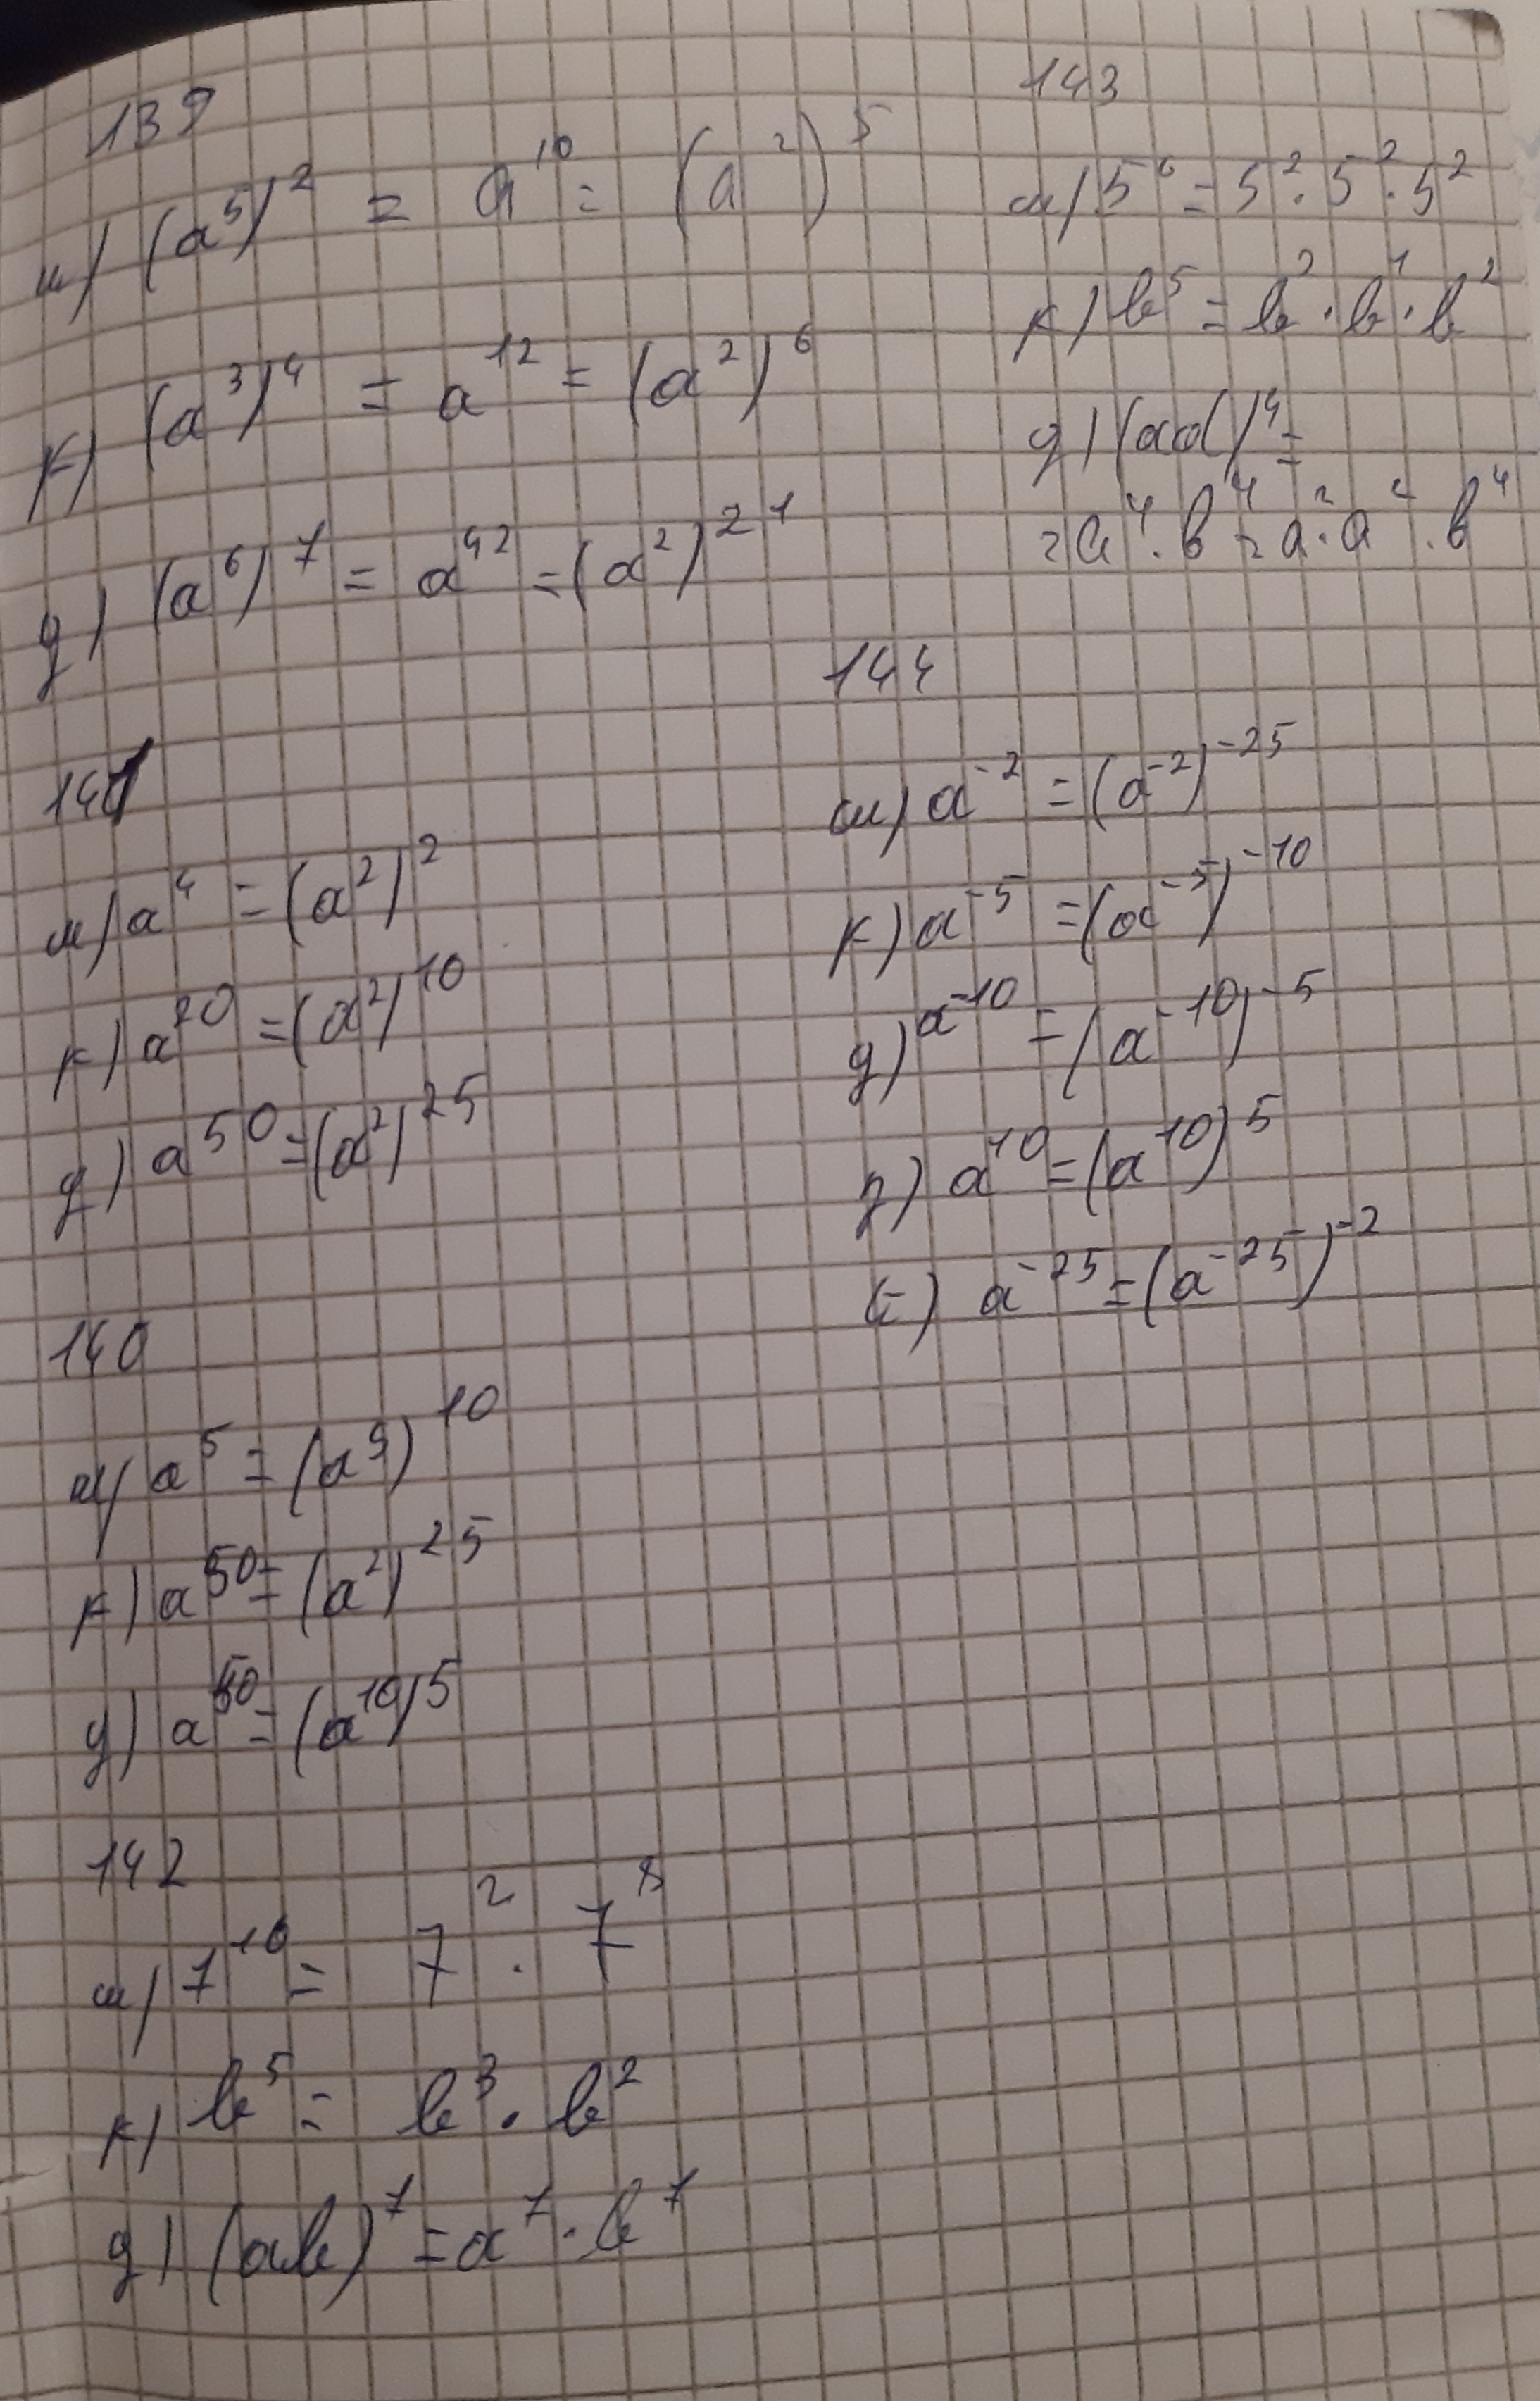 139
а) (a⁵)² = a¹⁰ = (a²)⁵
б) (a³)⁴ = a¹² = (a²)⁶
g) (a⁶)⁷ = a⁴² = (a²)²¹
141
а) a⁴ = (a²)²
б) a²⁰ = (a²)¹⁰
g) a⁵⁰ = (a²)²⁵
140
а) a⁵ = (a⁵)¹⁰
б) a⁵⁰ = (a²)²⁵
g) a⁵⁰ = (a¹⁰)⁵
142
а) 7¹⁰ = 7² · 7⁸
б) b⁵ = b³ · b²
g) (ab)⁷ = a⁷ · b⁷
143
а) 5⁶ = 5² · 5² · 5²
б) b⁵ = b² · b¹ · b²
g) (ab)⁴ =
= a⁴ · b⁴ = a² · a² · b⁴
144
а) a⁻² = (a⁻²)⁻²⁵
б) a⁻⁵ = (a⁻⁵)⁻¹⁰
g) a⁻¹⁰ = (a⁻¹⁰)⁻⁵
a¹⁰ = (a¹⁰)⁵
a⁻²⁵ = (a⁻²⁵)⁻²